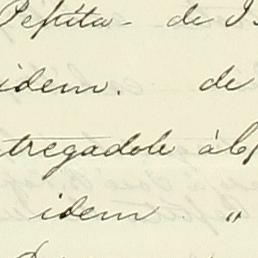 Pepita - de
idem. de
tregadole á
idem "